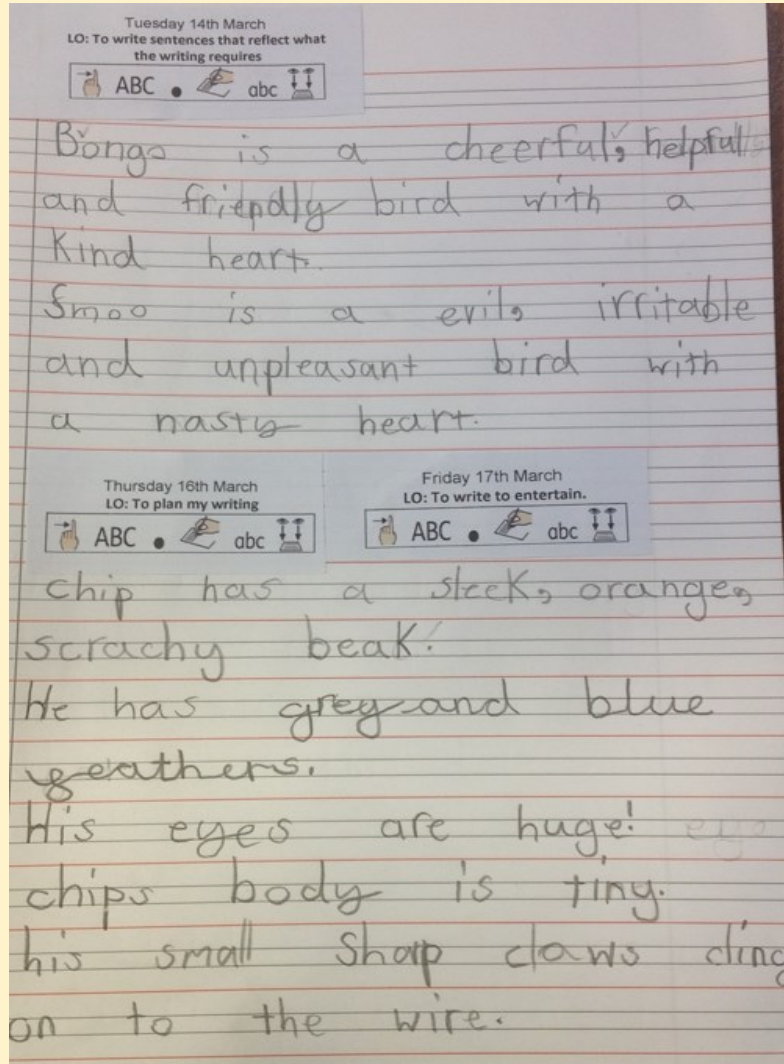 Tuesday 14th March
LO: To write sentences that reflect what
the writing requires
ABC . abc
Bongo is a cheerful, helpful
and friendly bird with a
Kind heart.
Smoo is a evil, irritable
and unpleasant bird with
a nasty heart.
Thursday 16th March
LO: To plan my writing
ABC . abc
Friday 17th March
LO: To write to entertain.
ABC . abc
chip has a sleek, orange,
scrachy beak.
He has grey and blue
feathers.
His eyes are huge! eye
chips body is tiny.
his small sharp claws cling
on to the wire.